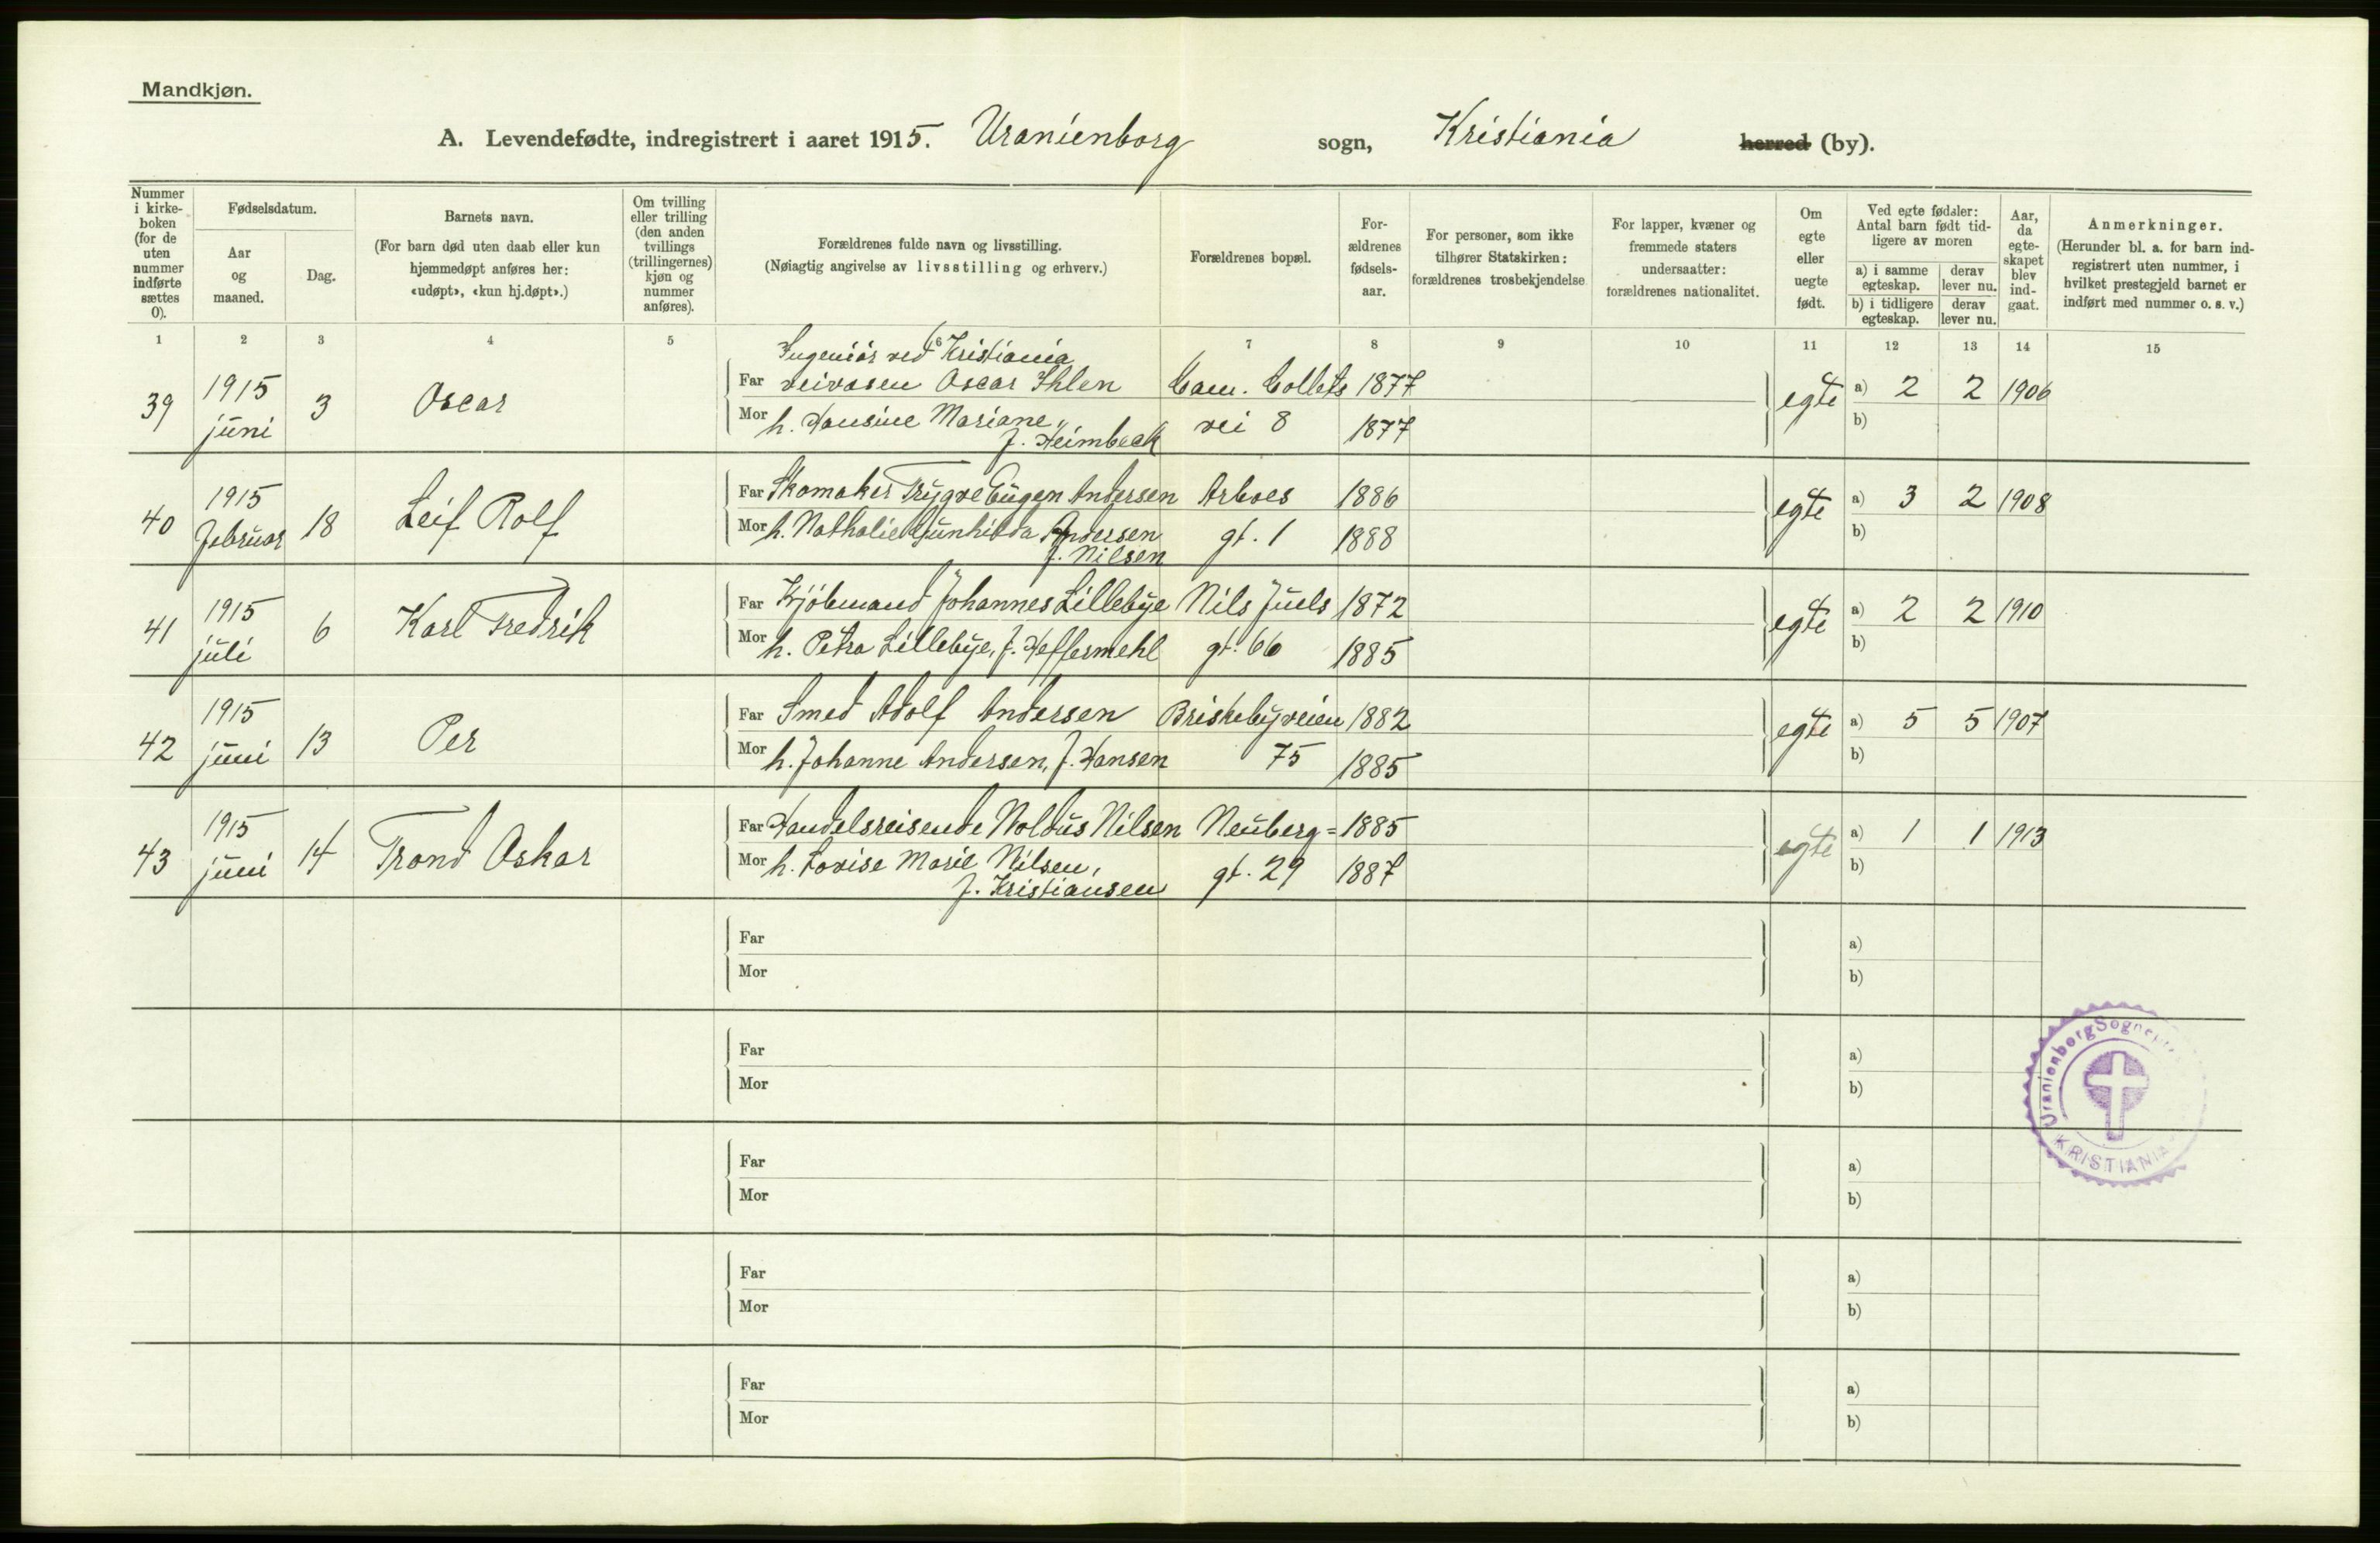 Mandkjøn.
A. Levendefødte, indregistrert i aaret 1915. Uranienborg sogn, Kristiania herred (by).
Nummer i kirke-boken (for de uten nummer indførte sættes 0).
Fødselsdatum.
Aar og maaned.
Dag.
Barnets navn.
(For barn død uten daab eller kun hjemmedøpt anføres her: «udøpt», «kun hj.døpt».)
Om tvilling eller trilling (den anden tvillings (trillingernes) kjøn og nummer anføres).
Forældrenes fulde navn og livsstilling.
(Nøiagtig angivelse av livsstilling og erhverv.)
Forældrenes bopæl.
For-ældrenes fødsels-aar.
For personer, som ikke tilhører Statskirken: forældrenes trosbekjendelse
For lapper, kvæner og fremmede staters undersaatter: forældrenes nationalitet.
Om egte eller uegte født.
Ved egte fødsler: Antal barn født tid-ligere av moren
a) i samme egteskap.
derav lever nu.
b) i tidligere egteskap.
derav lever nu.
Aar, da egte-skapet blev ind-gaat.
Anmerkninger.
(Herunder bl. a. for barn ind-registrert uten nummer, i hvilket prestegjeld barnet er indført med nummer o. s. v.)
1 2 3 4 5 6 7 8 9 10 11 12 13 14 15
Ingeniør ved Kristiania
39 1915 juni 3 Oscar Far veivæsen Oscar Ihlen Cam. Colletts 1877 egte a) 2 2 1906
Mor h. Hansine Mariane, vei 8 1877 b)
f. Heimbeck
40 1915 Februar 18 Leif Rolf Far Skomaker Trygve Eugen Andersen Arboes 1886 egte a) 3 2 1908
Mor h. Nathalie Gunhilda Andersen gt. 1 1888 b)
f. Nilsen
41 1915 juli 6 Karl Fredrik Far Kjöbmand Johannes Lillebye Nils Juels 1872 egte a) 2 2 1910
Mor h. Petra Lillebye, f. Heffermehl gt. 66 1885 b)
42 1915 juni 13 Per Far Smed Adolf Andersen Briskebyveien 1882 egte a) 5 5 1907
Mor h. Johanne Andersen, f. Hansen 75 1885 b)
43 1915 juni 14 Trond Oskar Far Handelsreisende Noldus Nilsen Neuberg= 1885 egte a) 1 1 1913
Mor h. Lovise Marie Nilsen, gt. 29 1887 b)
f. Kristiansen
Far a)
Mor b)
Far a)
Mor b)
Far a)
Mor b)
Far a)
Mor b)
Far a)
Mor b)
Uranienborg Sogne
KRISTIANIA